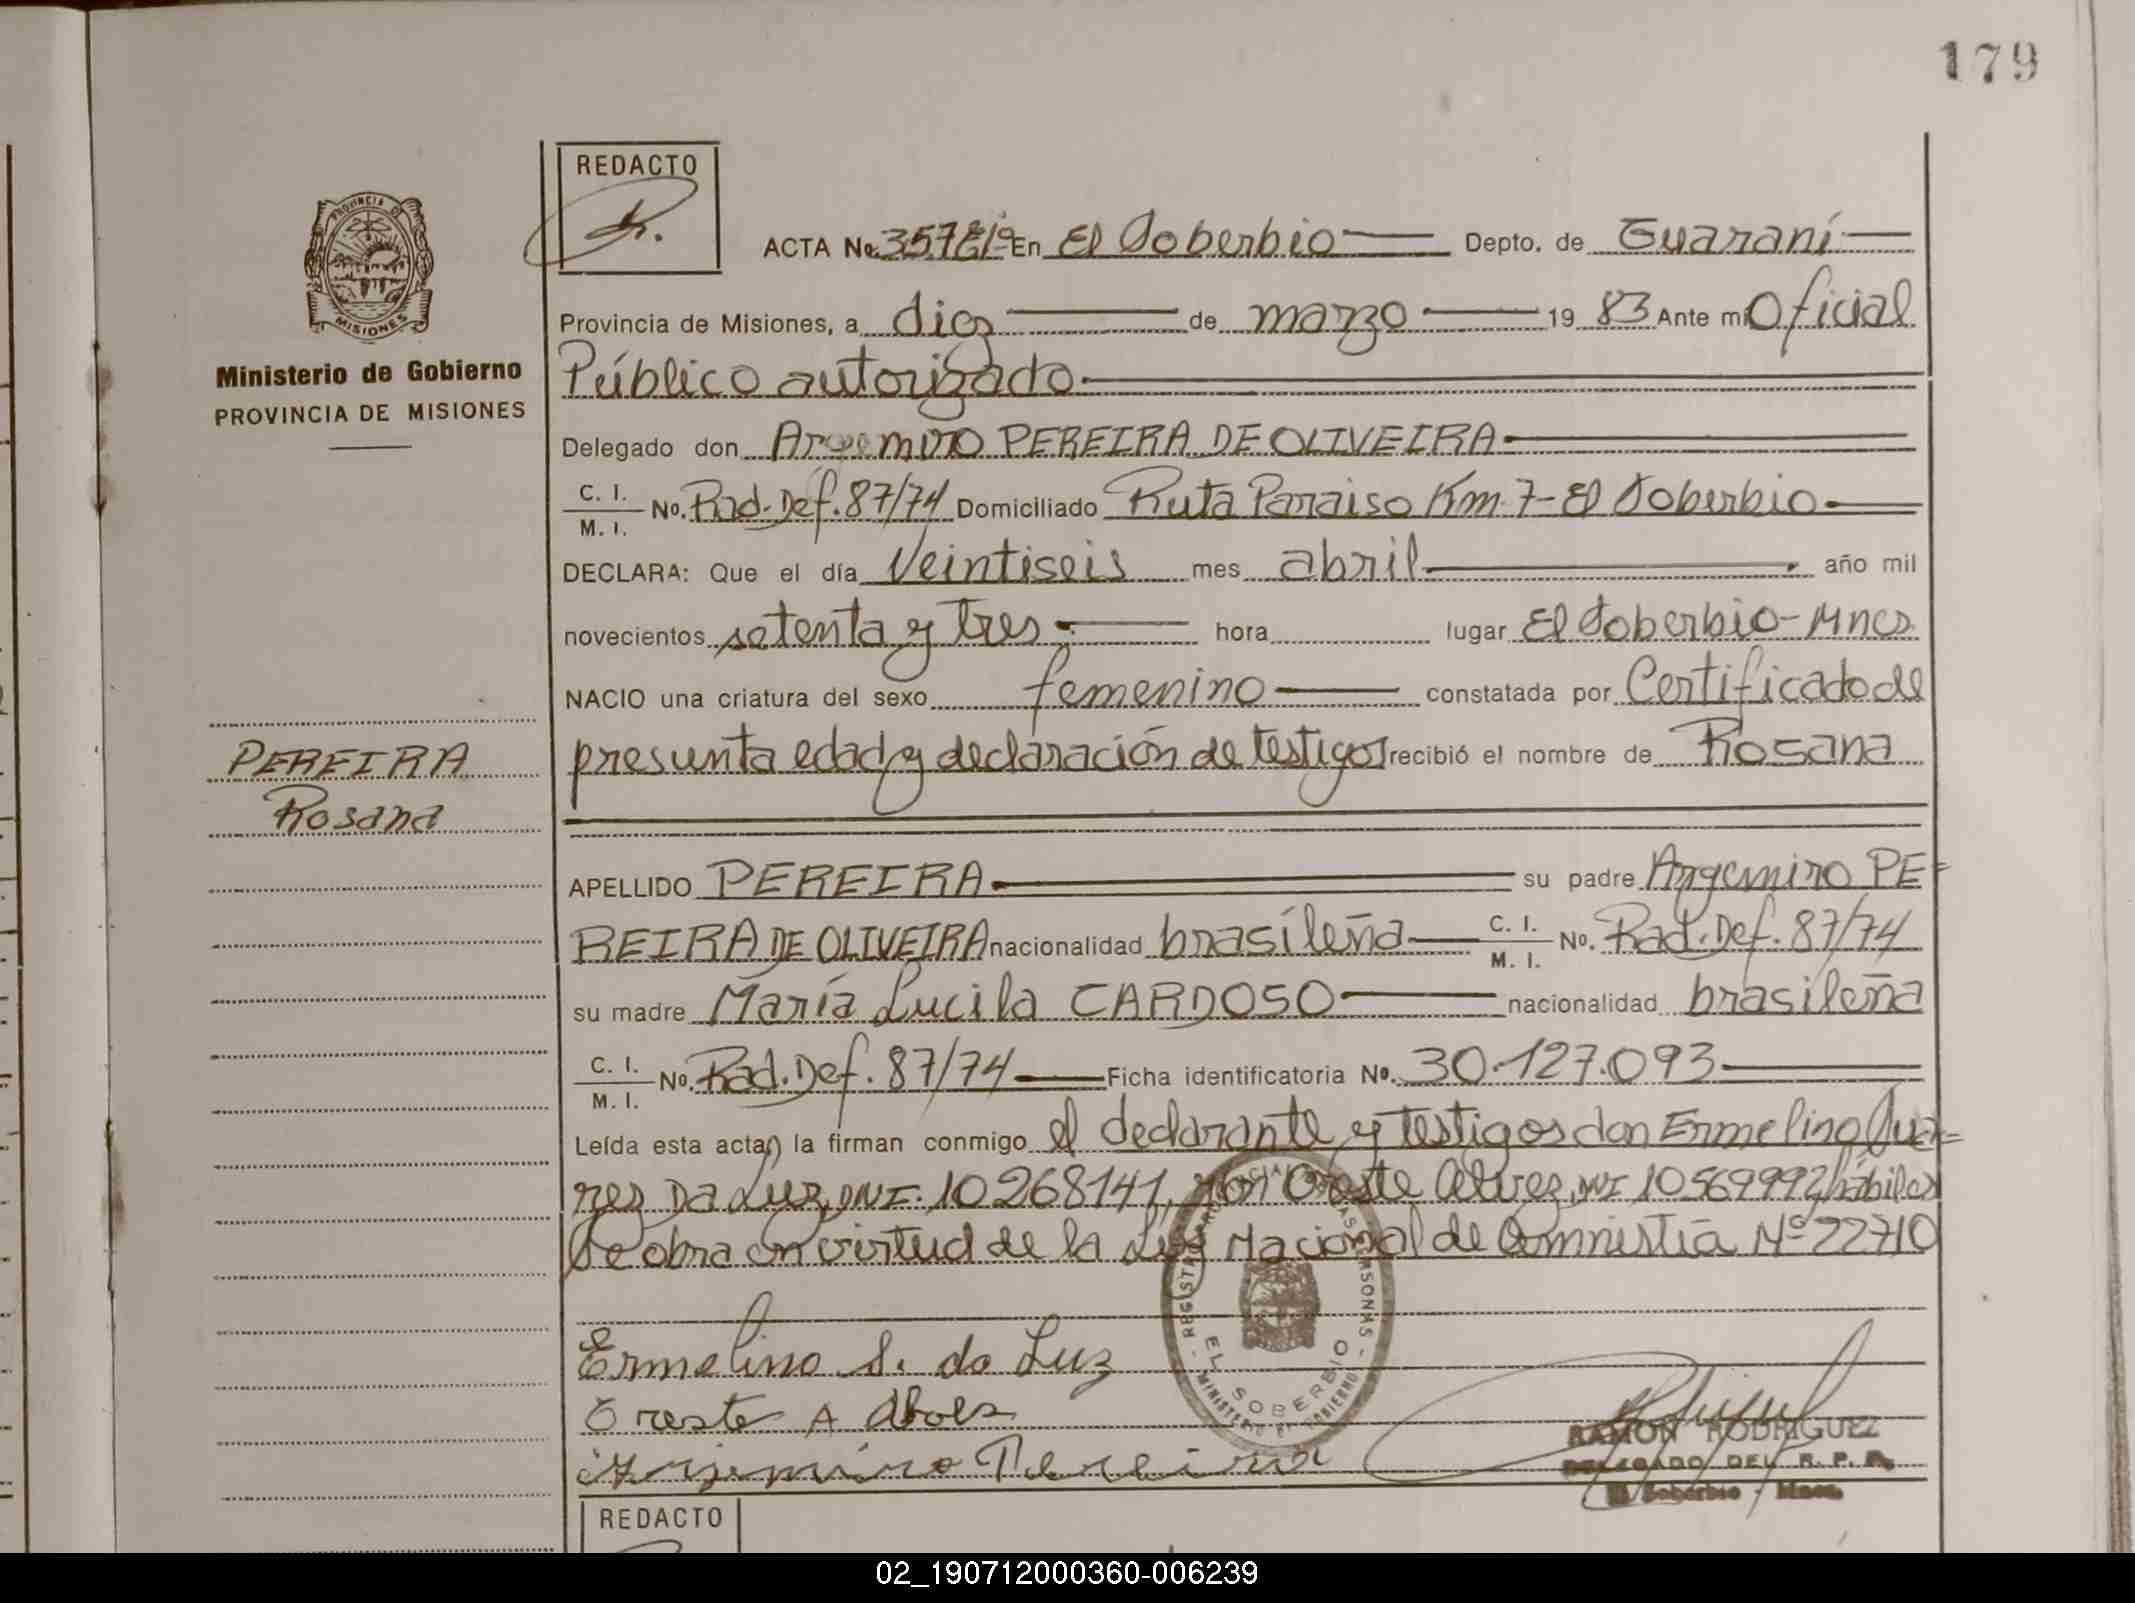 179
REDACTO
ACTA No. En El Soberbio Depto. de Guaraní
Provincia de Misiones, a diez de marzo 19 83 Ante mi Oficial
Ministerio de Gobierno
PROVINCIA DE MISIONES
Público autorizado
Delegado don Argemiro PEREIRA DE OLIVEIRA
C. I.
M. I. No. Rad. Def. 87/74 Domiciliado Ruta Paraiso Km. 7 - El Soberbio
DECLARA: Que el día Veintiseis mes abril año mil
novecientos setenta y tres hora lugar El Soberbio - Mnes.
NACIO una criatura del sexo femenino constatada por Certificado de
presunta edad y declaración de testigos recibió el nombre de Rosana
PEREIRA
Rosana
APELLIDO PEREIRA su padre Argemiro PE=
REIRA DE OLIVEIRA nacionalidad brasileña C. I. M. I. No. Rad. Def. 87/74
su madre María Lucila CARDOSO nacionalidad brasileña
C. I.
M. I. No. Rad. Def. 87/74 Ficha identificatoria No. 30.127.093
Leída esta acta, la firman conmigo el declarante y testigos don Ermelino
Da Luz, DNI. 10268141, y don Oreste Alvez, DNI 10569992, hábiles
Se obra en virtud de la Ley Nacional de Amnistía Nº 22710
Ermelino S. da Luz
Oreste A
Argemiro Pereira
REGISTRO PROVINCIAL DE LAS PERSONAS
EL SOBERBIO
MINISTERIO DE GOBIERNO
RAMON RODRIGUEZ
DELEGADO DEL R. P. P.
El Soberbio - Mnes.
REDACTO
02_190712000360-006239